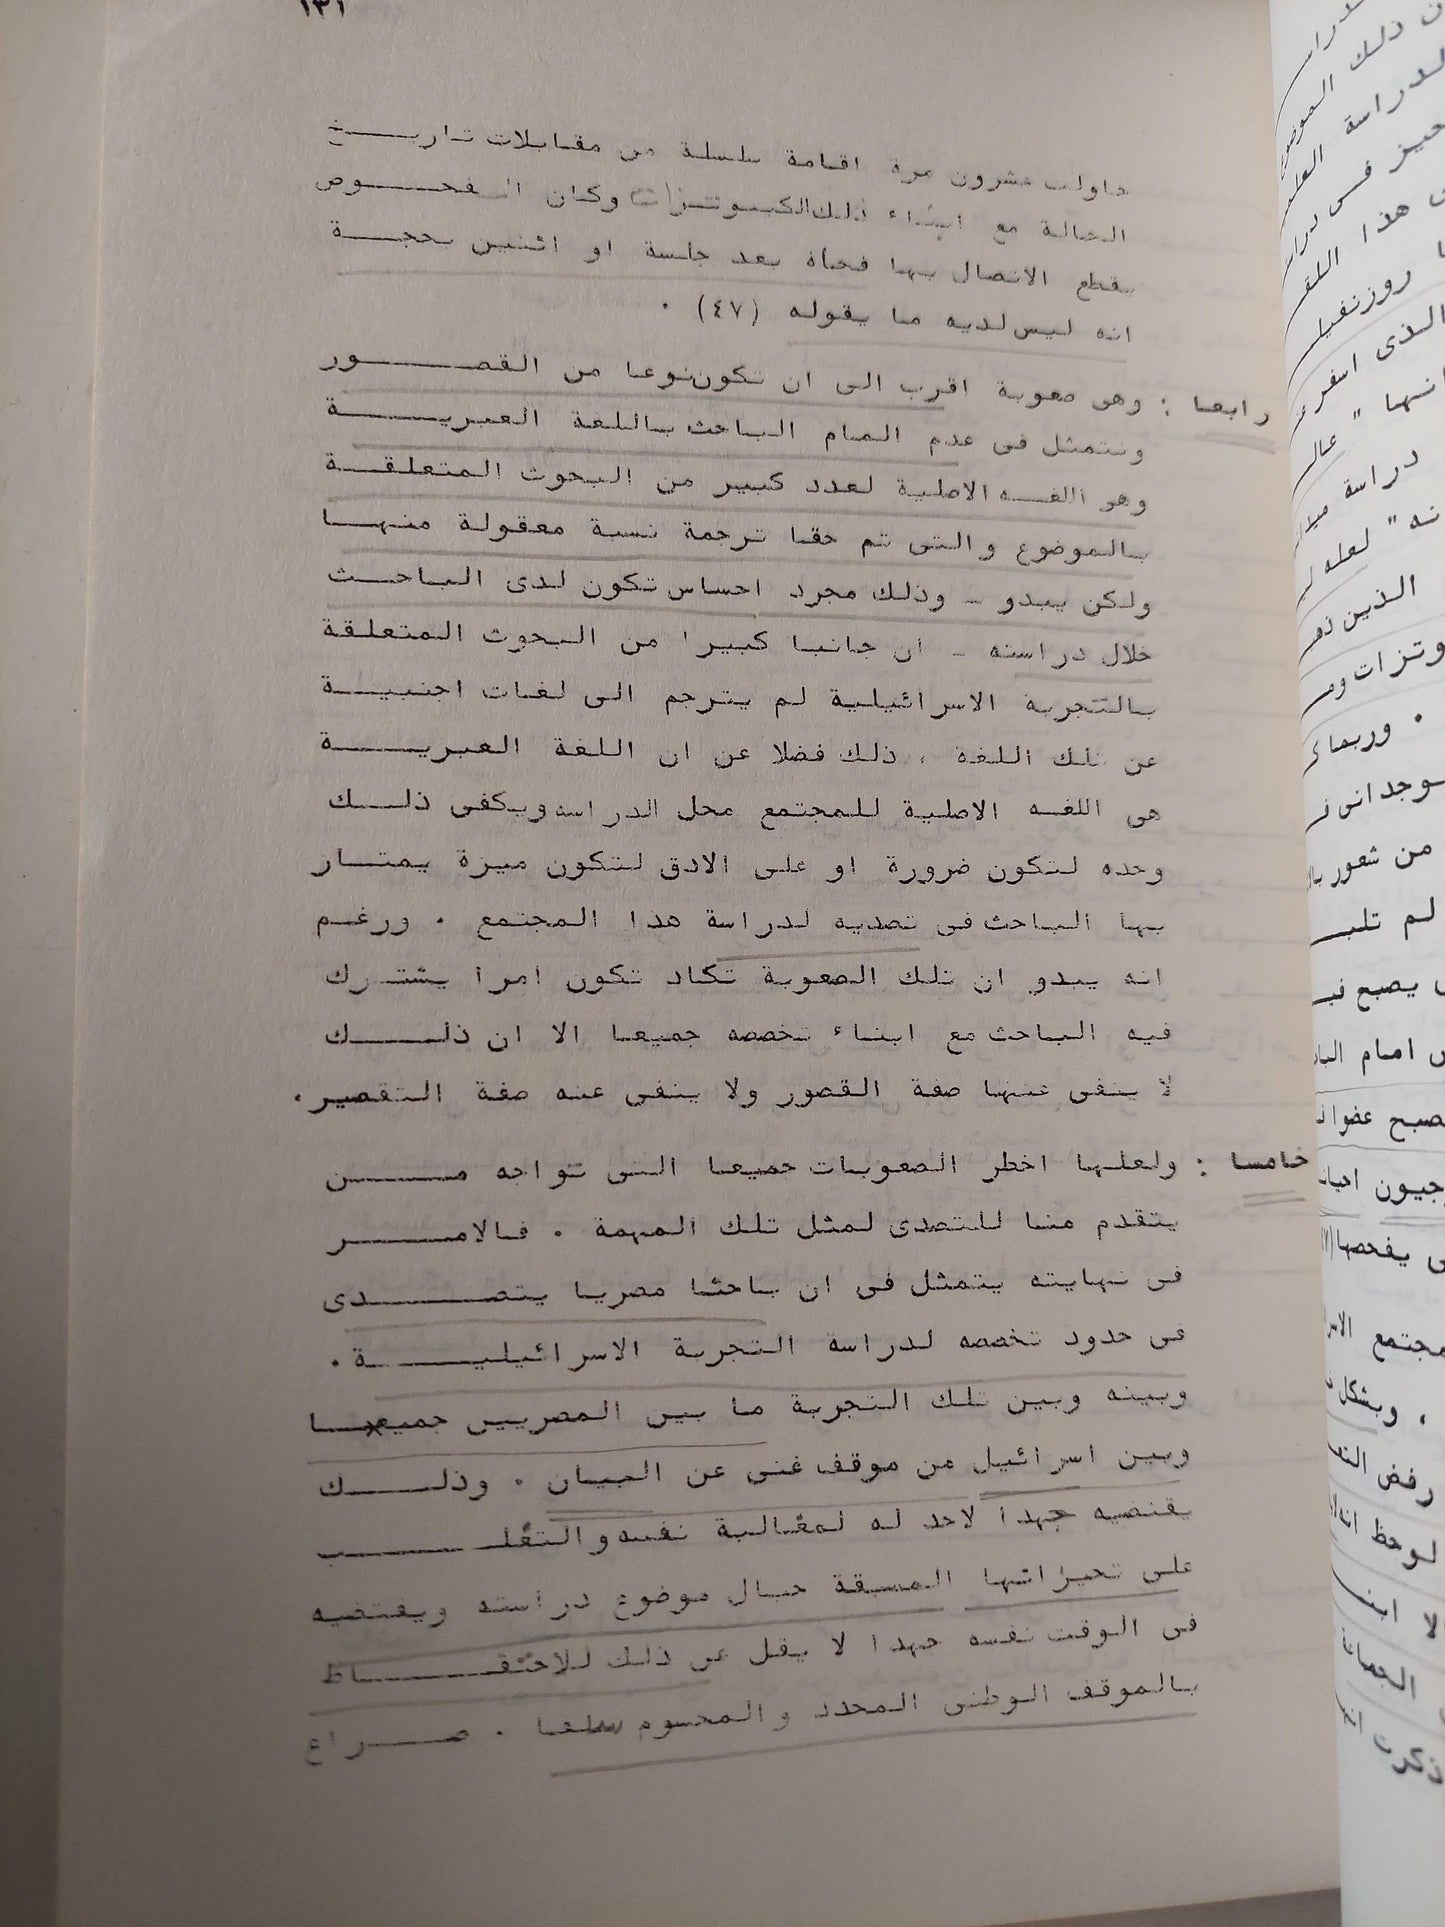 ١٣١
حاولت عشرون مرة اقامة سلسلة من مقابلات تاريخ
الحالة مع ابناء ذلك الكيبوتتزات وكان المفحوص
يقطع الاتصال بها فجأة بعد جلسة او اثنتين بحجة
انه ليس لديه ما يقوله (٤٧) .
رابعا : وهى صعوبة اقرب الى ان تكون نوعا من القصور
وتتمثل فى عدم المام الباحث باللغة العبرية
وهو اللغه الاصلية لعدد كبير من البحوث المتعلقة
بالموضوع والتى تم حقا ترجمة نسبة معقولة منها
ولكن يبدو - وذلك مجرد احساس تكون لدى الباحث
خلال دراسته - ان جانبا كبيرا من البحوث المتعلقة
بالتجربة الاسرائيلية لم يترجم الى لغات اجنبية
عن تلك اللغة . ذلك فضلا عن ان اللغة العبرية
هى اللغه الاصلية للمجتمع محل الدراسه ويكفى ذلك
وحده لتكون ضرورة او على الادق لتكون ميزة يمتاز
بها الباحث فى تصديه لدراسة هذا المجتمع . ورغم
انه يبدو ان تلك الصعوبة تكاد تكون امرا يشترك
فيه الباحث مع ابناء تخصصه جميعا الا ان ذلك
لا ينفى عنها صفة القصور ولا ينفى عنه صفة التقصير.
خامسا : ولعلها اخطر الصعوبات جميعا التى تواجه من
يتقدم منا للتصدى لمثل تلك المهمة . فالامر
فى نهايته يتمثل فى ان باحثا مصريا يتصدى
فى حدود تخصصه لدراسة التجربة الاسرائيلية .
وبينه وبين تلك التجربة ما بين المصريين جميعها
وبين اسرائيل من موقف غنى عن البيان . وذلك
يقتضيه جهدا لاحد له لمغالبة نفسه والتغلب
على تحيزاتها المسبقة حيال موضوع دراسته ويقتضيه
فى الوقت نفسه جهدا لا يقل عن ذلك للاحتفاظ
بالموقف الوطنى المحدد والمحسوم سلفا . صراع